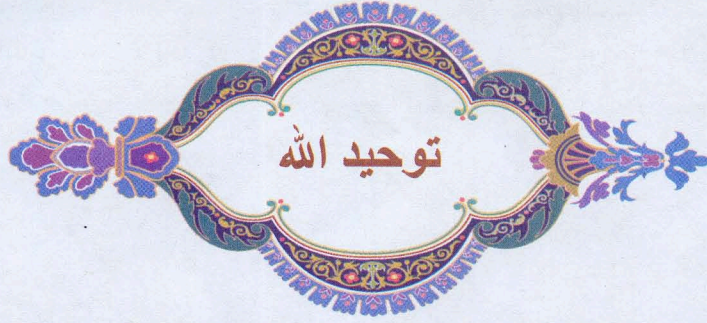 توحيد الله